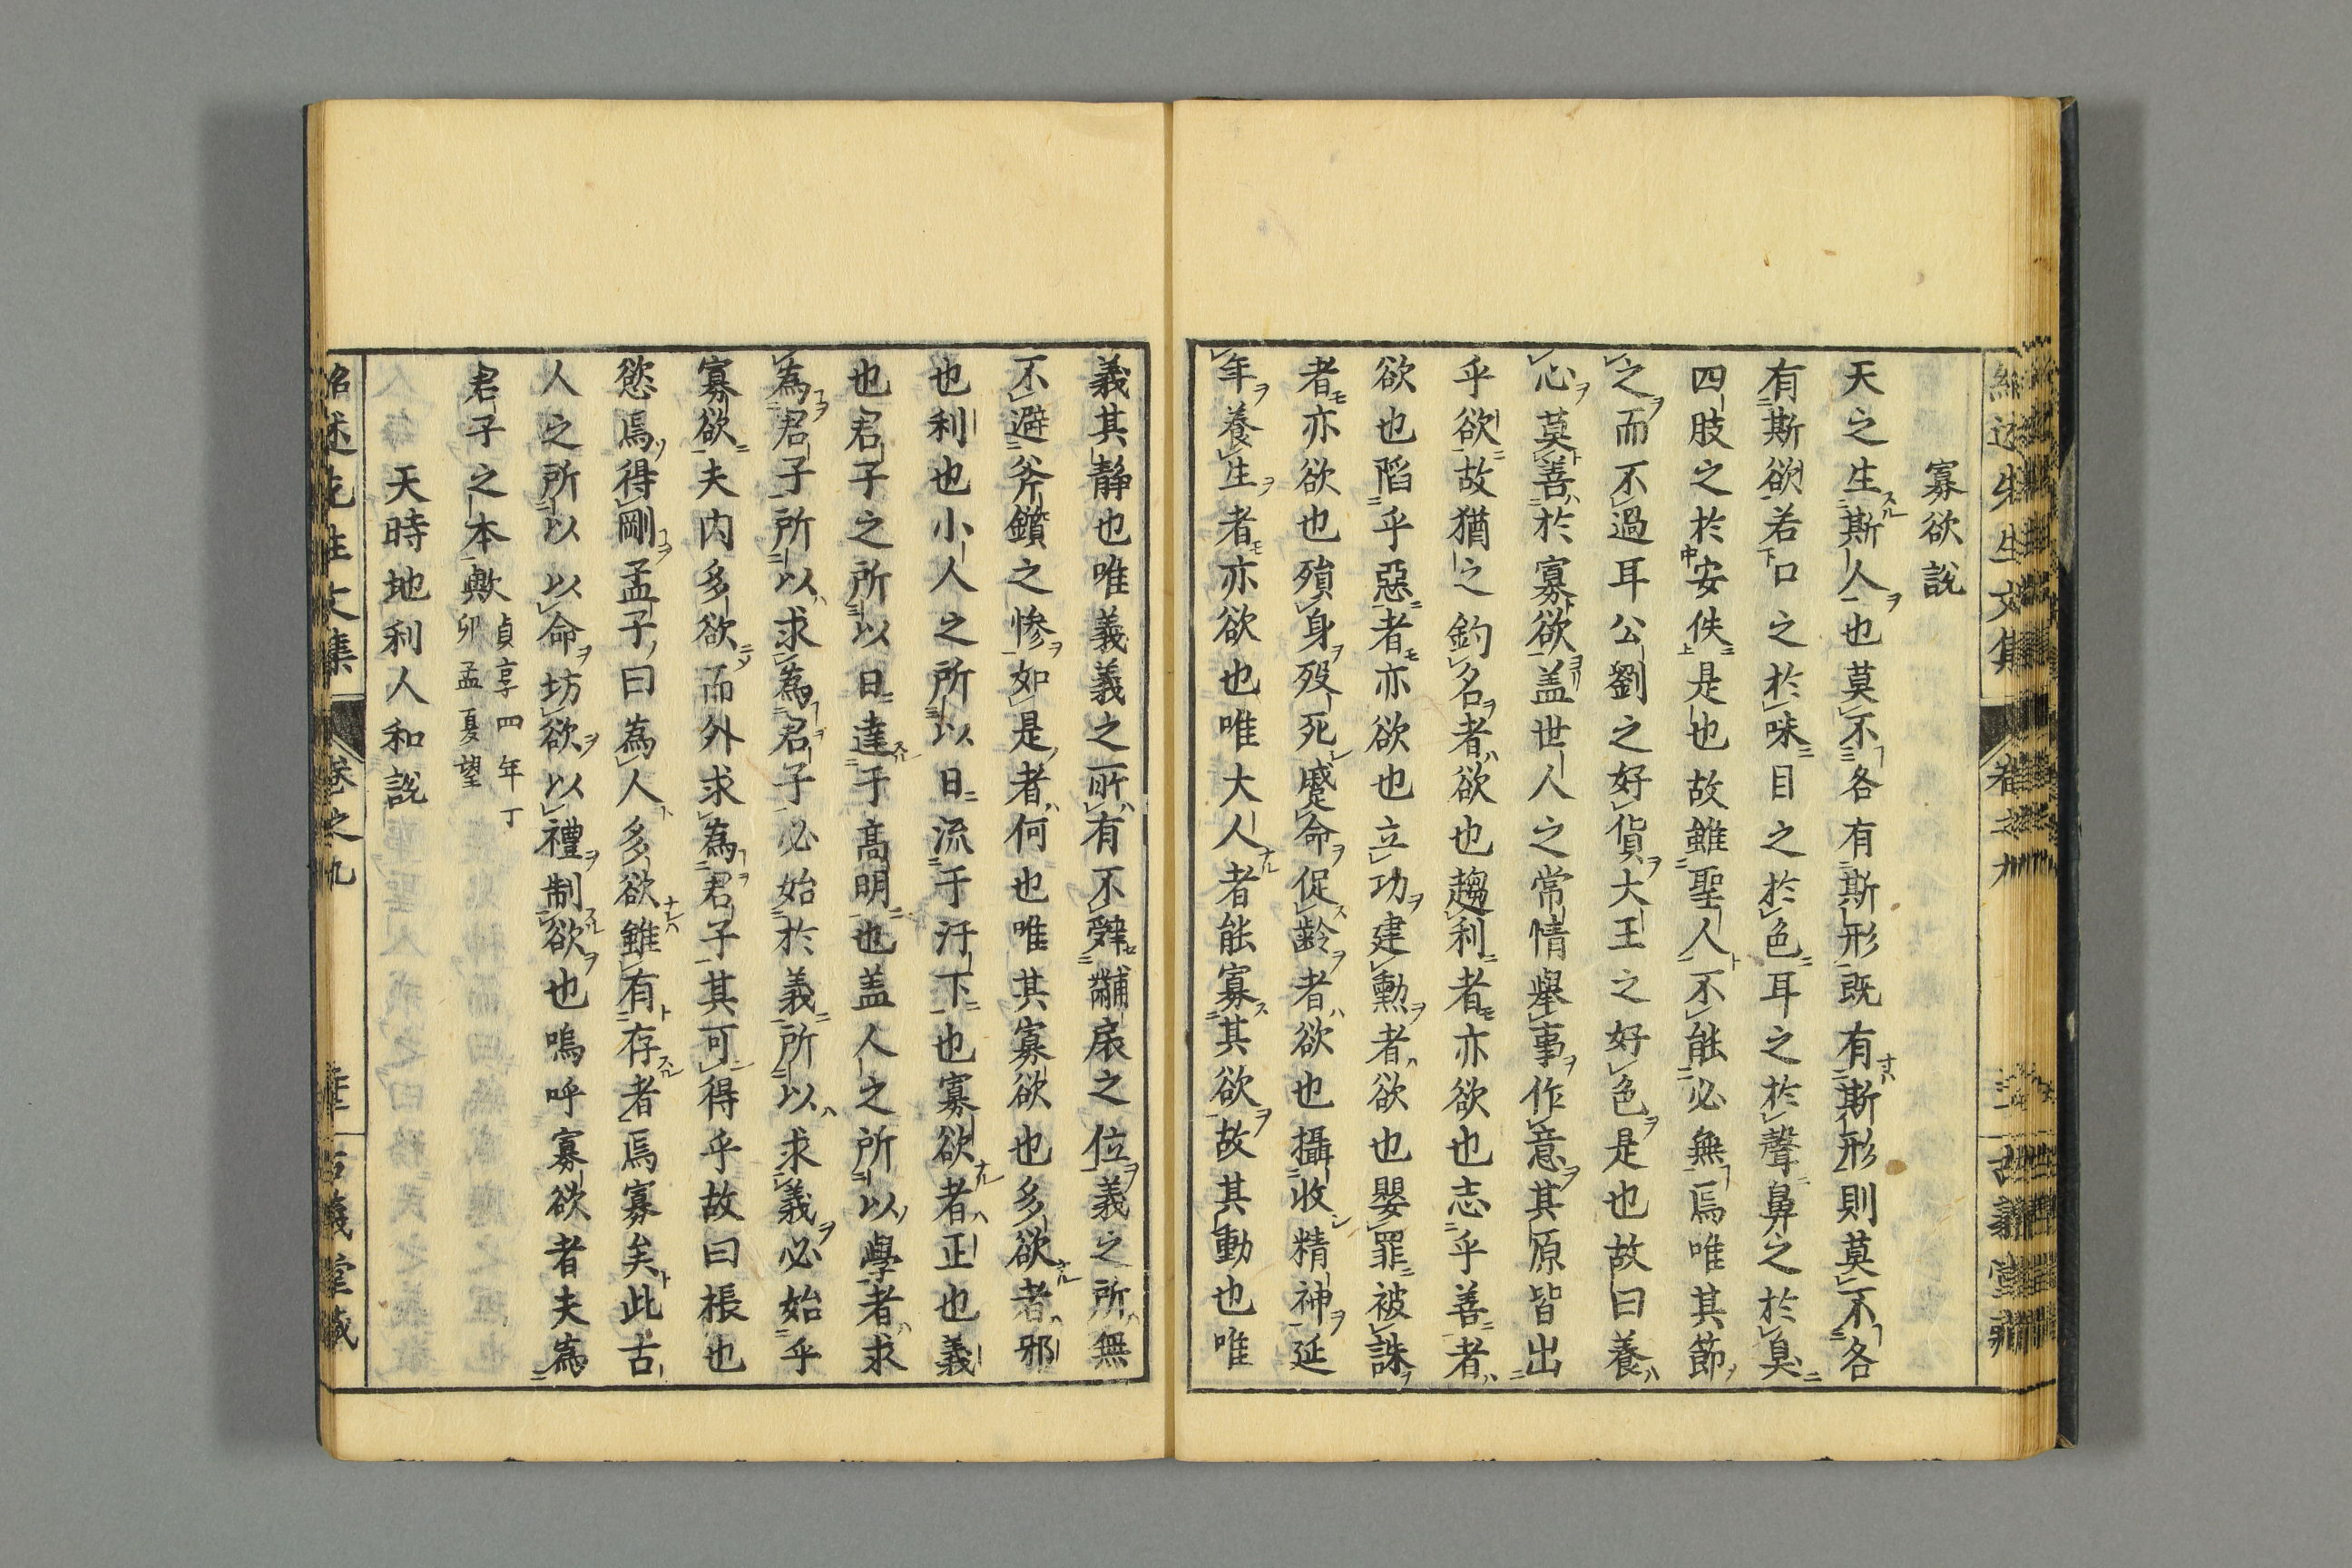 寡欲說
天之生斯人也莫不各有斯形既有斯形則莫不各
有斯欲若口之於味目之於色耳之於聲鼻之於臭
四肢之於安佚是也故雖聖人不能必無焉唯其節
之而不過耳公劉之好貨大王之好色是也故曰養
心莫善於寡欲盖世人之常情舉事作意其原皆出
乎欲故猶之釣名者欲也趨利者亦欲也志乎善者
欲也陷乎惡者亦欲也立功建勳者欲也嬰罪被誅
者亦欲也殞身歿死蹙命促齡者欲也攝收精神延
年養生者亦欲也唯大人者能寡其欲故其動也唯
義其靜也唯義義之所有不辭黼扆之位義之所無
不避斧鑕之慘如是者何也唯其寡欲也多欲者邪
也利也小人之所以日流于汙下也寡欲者正也義
也君子之所以日達于高明也盖人之所以學者求
為君子所以求為君子必始於義所以求義必始乎
寡欲夫内多欲而外求為君子其可得乎故曰棖也
慾焉得剛孟子曰為人多欲雖有存者焉寡矣此古
人之所以以命坊欲以禮制欲也嗚呼寡欲者夫為
君子之本歟貞享四年丁
卯孟夏望
天時地利人和說
紹述先生文集 卷之九 古義堂藏